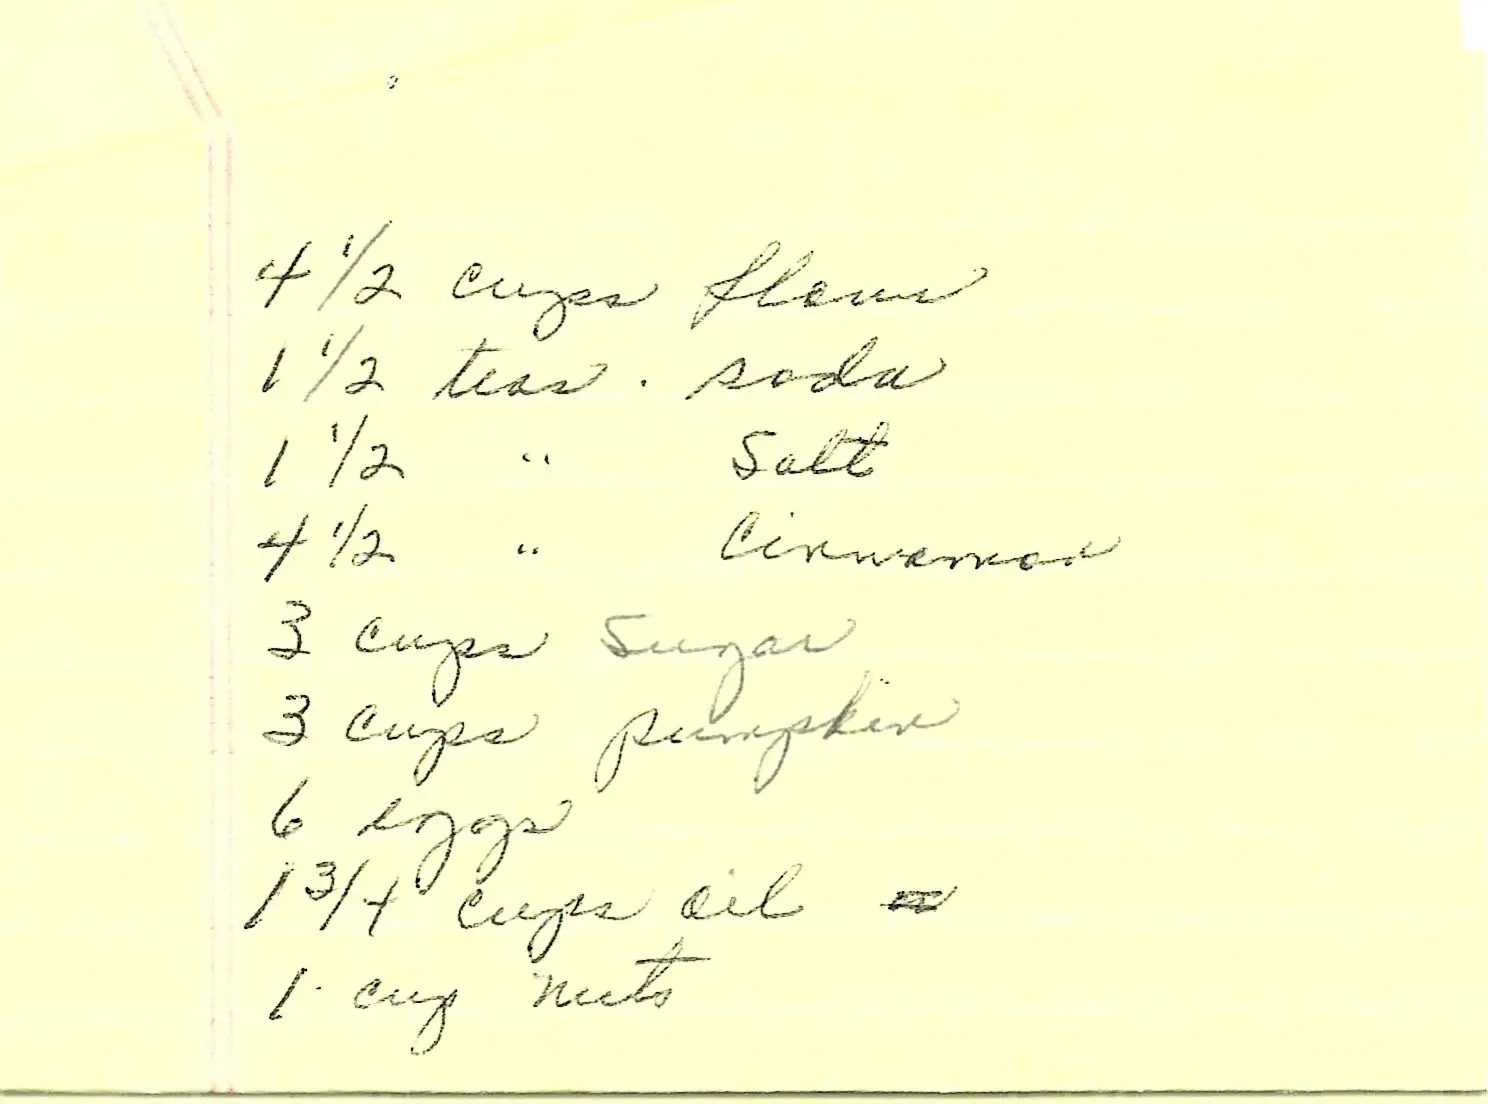 4 1/2 cups flour
1 1/2 teas. soda
1 1/2 " Salt
4 1/2 " Cinnamon
3 cups Sugar
3 cups pumpkin
6 eggs
1 3/4 cups oil
1 cup nuts